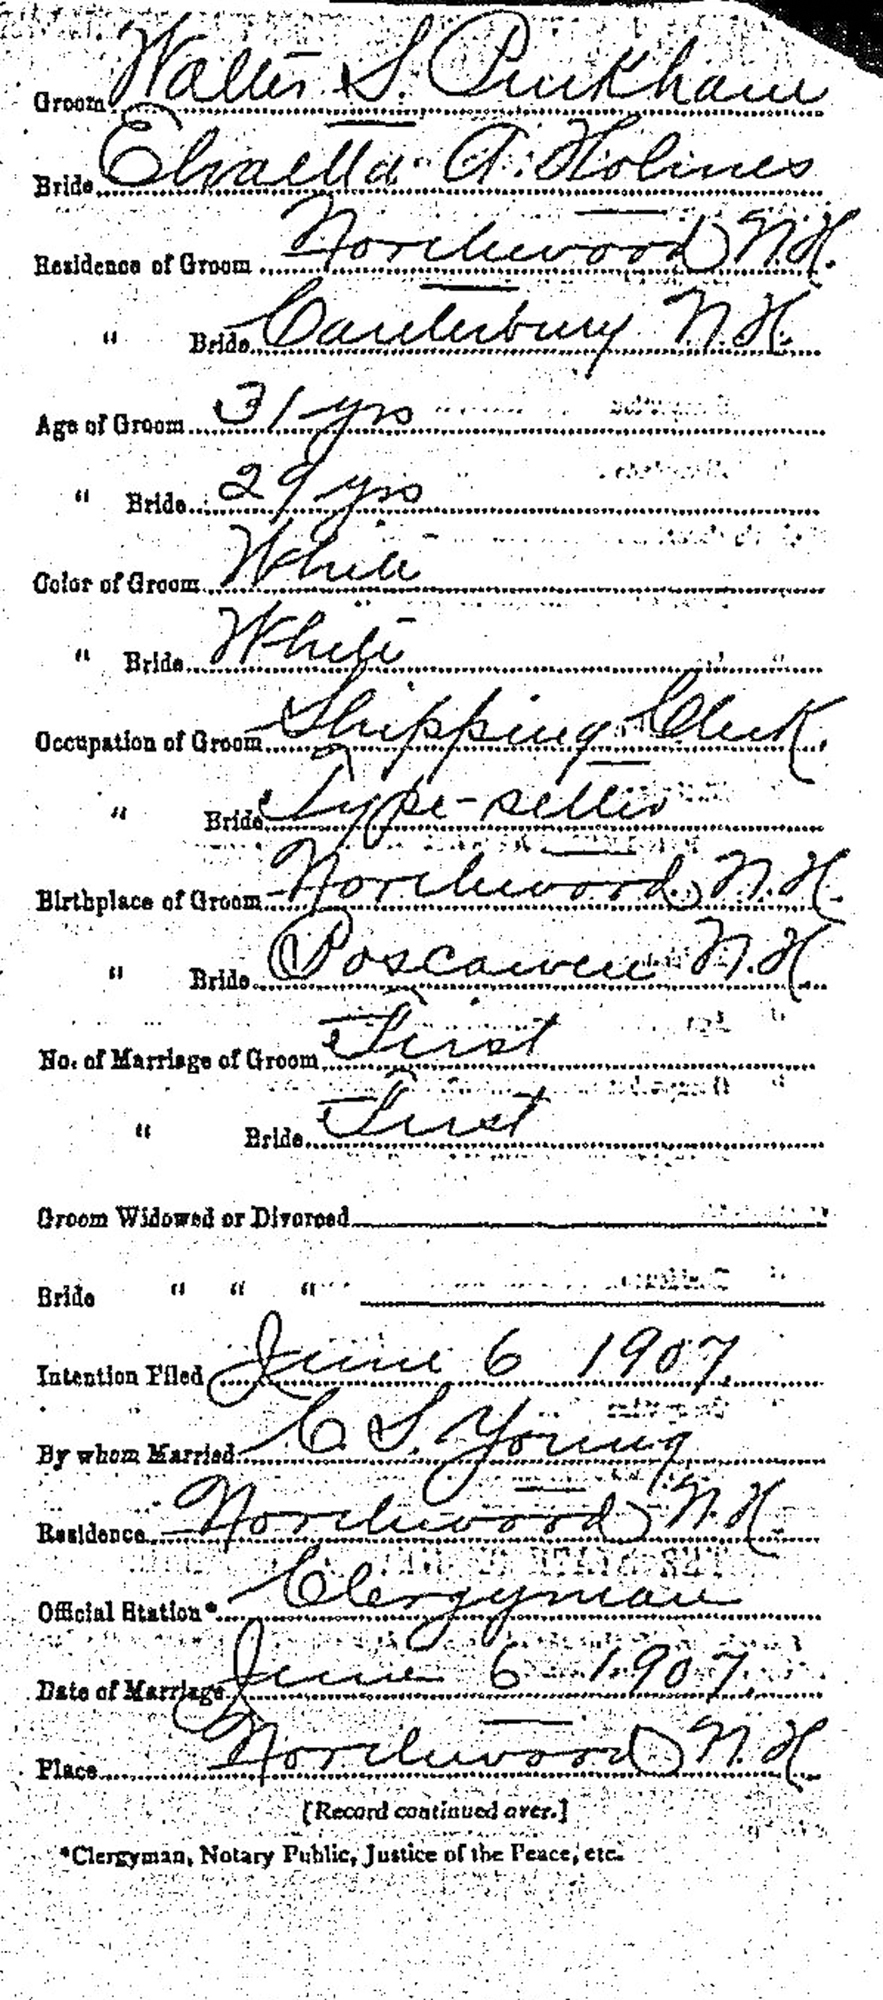 Groom Walter S. Pinkham
Bride A. Holmes
Residence of Groom Northwood N.H.
" Bride Canterbury N.H.
Age of Groom 31 yrs
" Bride 29 yrs
Color of Groom White
" Bride White
Occupation of Groom Shipping Clerk
" Bride Type-setter
Birthplace of Groom Northwood N.H.
" Bride Boscawen N.H.
No. of Marriage of Groom First
" Bride First
Groom Widowed or Divorced
Bride " " "
Intention Filed June 6 1907
By whom Married C. S. Young
Residence Northwood N.H.
Official Station* Clergyman
Date of Marriage June 6 1907
Place Northwood N.H.
[Record continued over.]
*Clergyman, Notary Public, Justice of the Peace, etc.